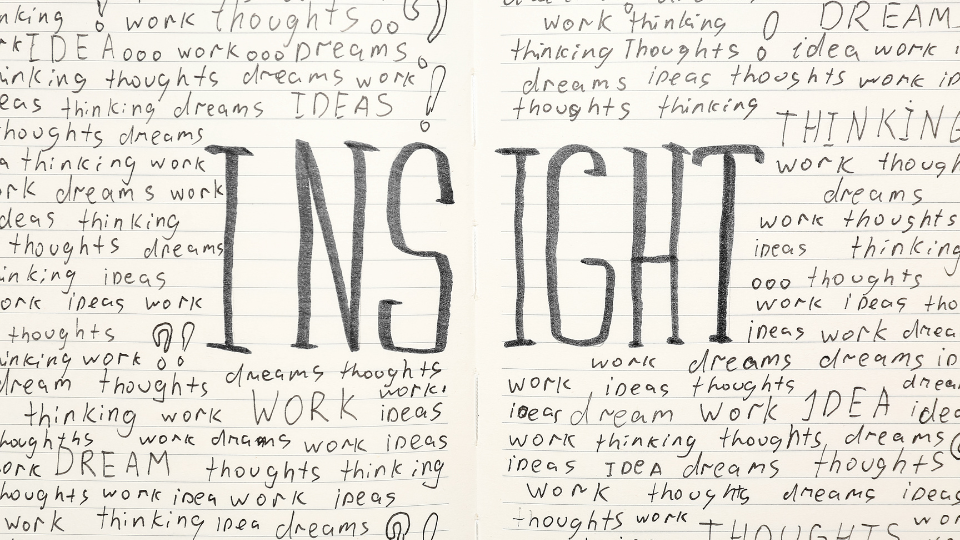 nking ! work thoughts oo
IDEA ooo work ooo Dreams
inking thoughts dreams work
eas thinking dreams IDEAS !
thoughts dreams
a thinking work
ork dreams work
deas thinking
thoughts dreams
inking ideas
ork ideas work
thoughts !
inking work
dreams thoughts
dream thoughts
work
thinking work WORK ideas
houghths work dramms work ideas
ork DREAM thoughts thinking
houghts work idea work ideas
work thinking idea dreams !
INSIGHT
work thinking DREAM
thinking Thoughts o idea work
dreams ideas thoughts work id
thoughts thinking
THINKING
work though
dreams
work thoughts
ideas thinking
ooo thoughts
work ideas tho
ideas work drea
work dreams dreams id
work ideas thoughts dream
idear dream work IDEA idea
work thinking thoughts, dreams
ideas IDEA dreams thoughts
work thoughts dreams ideas
thoughts work THOUGHTS wor